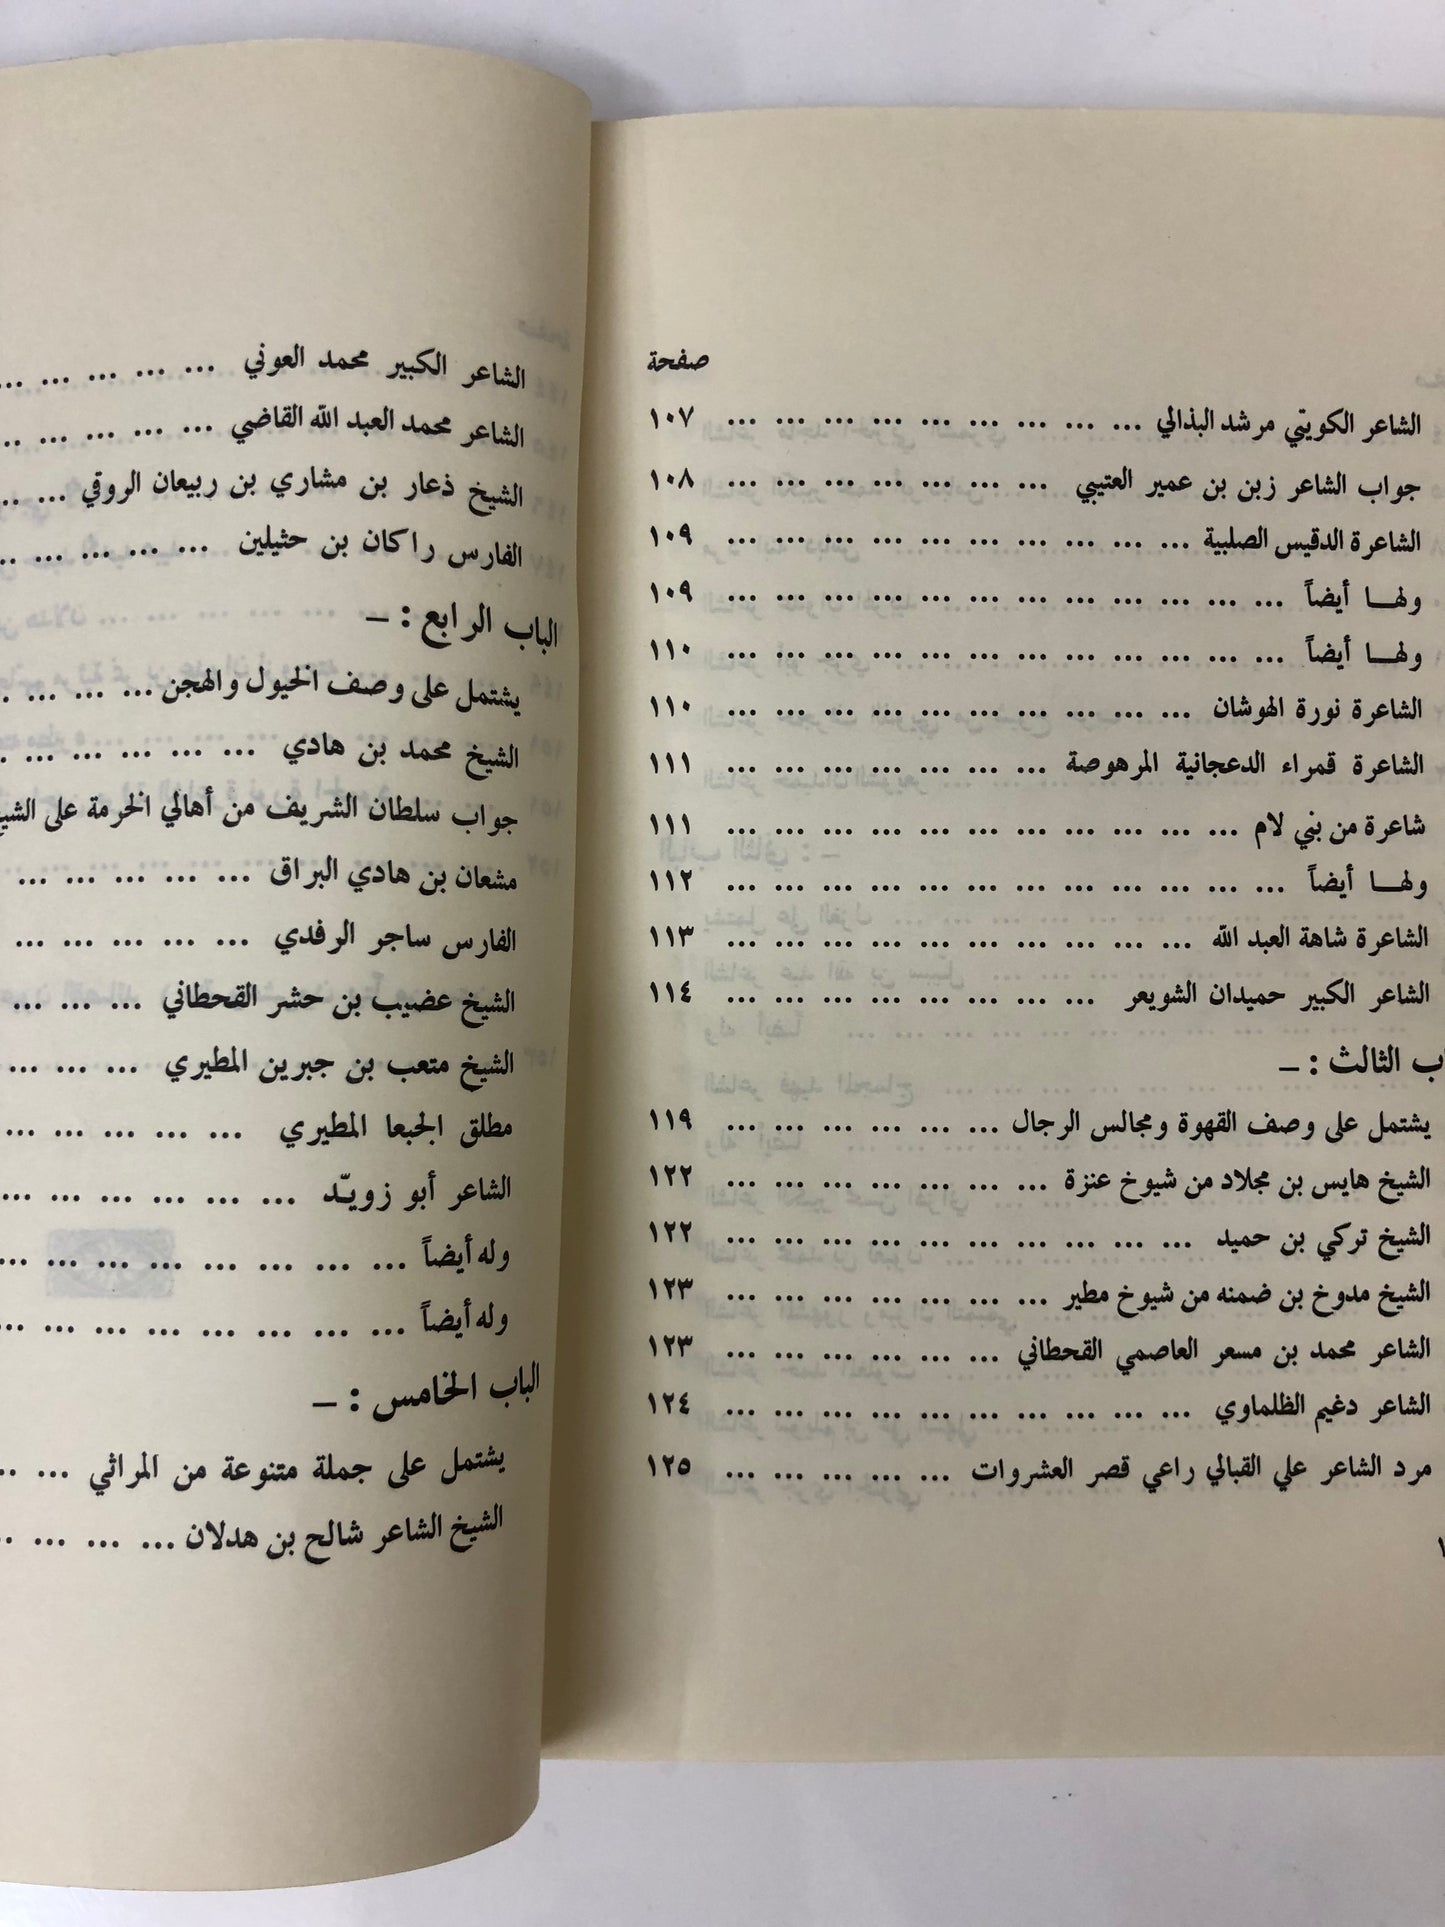 صفحة
الشاعر الكويتي مرشد البذالي ... ... ... ... ... ... ... ... ... ١٠٧
جواب الشاعر زبن بن عمير العتيبي ... ... ... ... ... ... ... ١٠٨
الشاعرة الدقيس الصلبية ... ... ... ... ... ... ... ... ... ... ١٠٩
ولهـــا أيضاً ... ... ... ... ... ... ... ... ... ... ... ... ١٠٩
ولهـــا أيضاً ... ... ... ... ... ... ... ... ... ... ... ... ١١٠
الشاعرة نورة الهوشان ... ... ... ... ... ... ... ... ... ... ١١٠
الشاعرة قمراء الدعجانية المرهوصة ... ... ... ... ... ... ... ١١١
شاعرة من بني لام ... ... ... ... ... ... ... ... ... ... ... ١١١
ولهـــا أيضاً ... ... ... ... ... ... ... ... ... ... ... ... ١١٢
الشاعرة شاهة العبد الله ... ... ... ... ... ... ... ... ... ... ١١٣
الشاعر الكبير حميدان الشويعر ... ... ... ... ... ... ... ... ١١٤
ب الثالث : –
يشتمل على وصف القهوة ومجالس الرجال ... ... ... ... ... ... ١١٩
الشيخ هايس بن مجلاد من شيوخ عنزة ... ... ... ... ... ... ... ١٢٢
الشيخ تركي بن حميد ... ... ... ... ... ... ... ... ... ... ١٢٢
الشيخ مدوخ بن ضمنه من شيوخ مطير ... ... ... ... ... ... ... ١٢٣
الشاعر محمد بن مسعر العاصمي القحطاني ... ... ... ... ... ... ١٢٣
الشاعر دغيم الظلماوي ... ... ... ... ... ... ... ... ... ... ١٢٤
مرد الشاعر علي القبالي راعي قصر العشروات ... ... ... ... ... ١٢٥
الشاعر الكبير محمد العوني ... ... ... ... ...
الشاعر محمد العبد الله القاضي ... ... ... ... ...
الشيخ ذعار بن مشاري بن ربيعان الروقي ... ...
الفارس راكان بن حثيلين ... ... ... ... ...
الباب الرابع : –
يشتمل على وصف الخيول والهجن ... ... ... ...
الشيخ محمد بن هادي ... ... ... ... ... ...
جواب سلطان الشريف من أهالي الخرمة على الشيخ
مشعان بن هادي البراق ... ... ... ... ...
الفارس ساجر الرفدي ... ... ... ... ... ...
الشيخ عضيب بن حشر القحطاني ... ... ... ...
الشيخ متعب بن جبرين المطيري ... ... ... ...
مطلق الجبعا المطيري ... ... ... ... ... ...
الشاعر أبو زويـّد ... ... ... ... ... ... ...
وله أيضاً ... ... ... ... ... ... ... ... ...
وله أيضاً ... ... ... ... ... ... ... ... ...
الباب الخامس : –
يشتمل على جملة متنوعة من المراثي ... ...
الشيخ الشاعر شالح بن هدلان ... ... ... ...